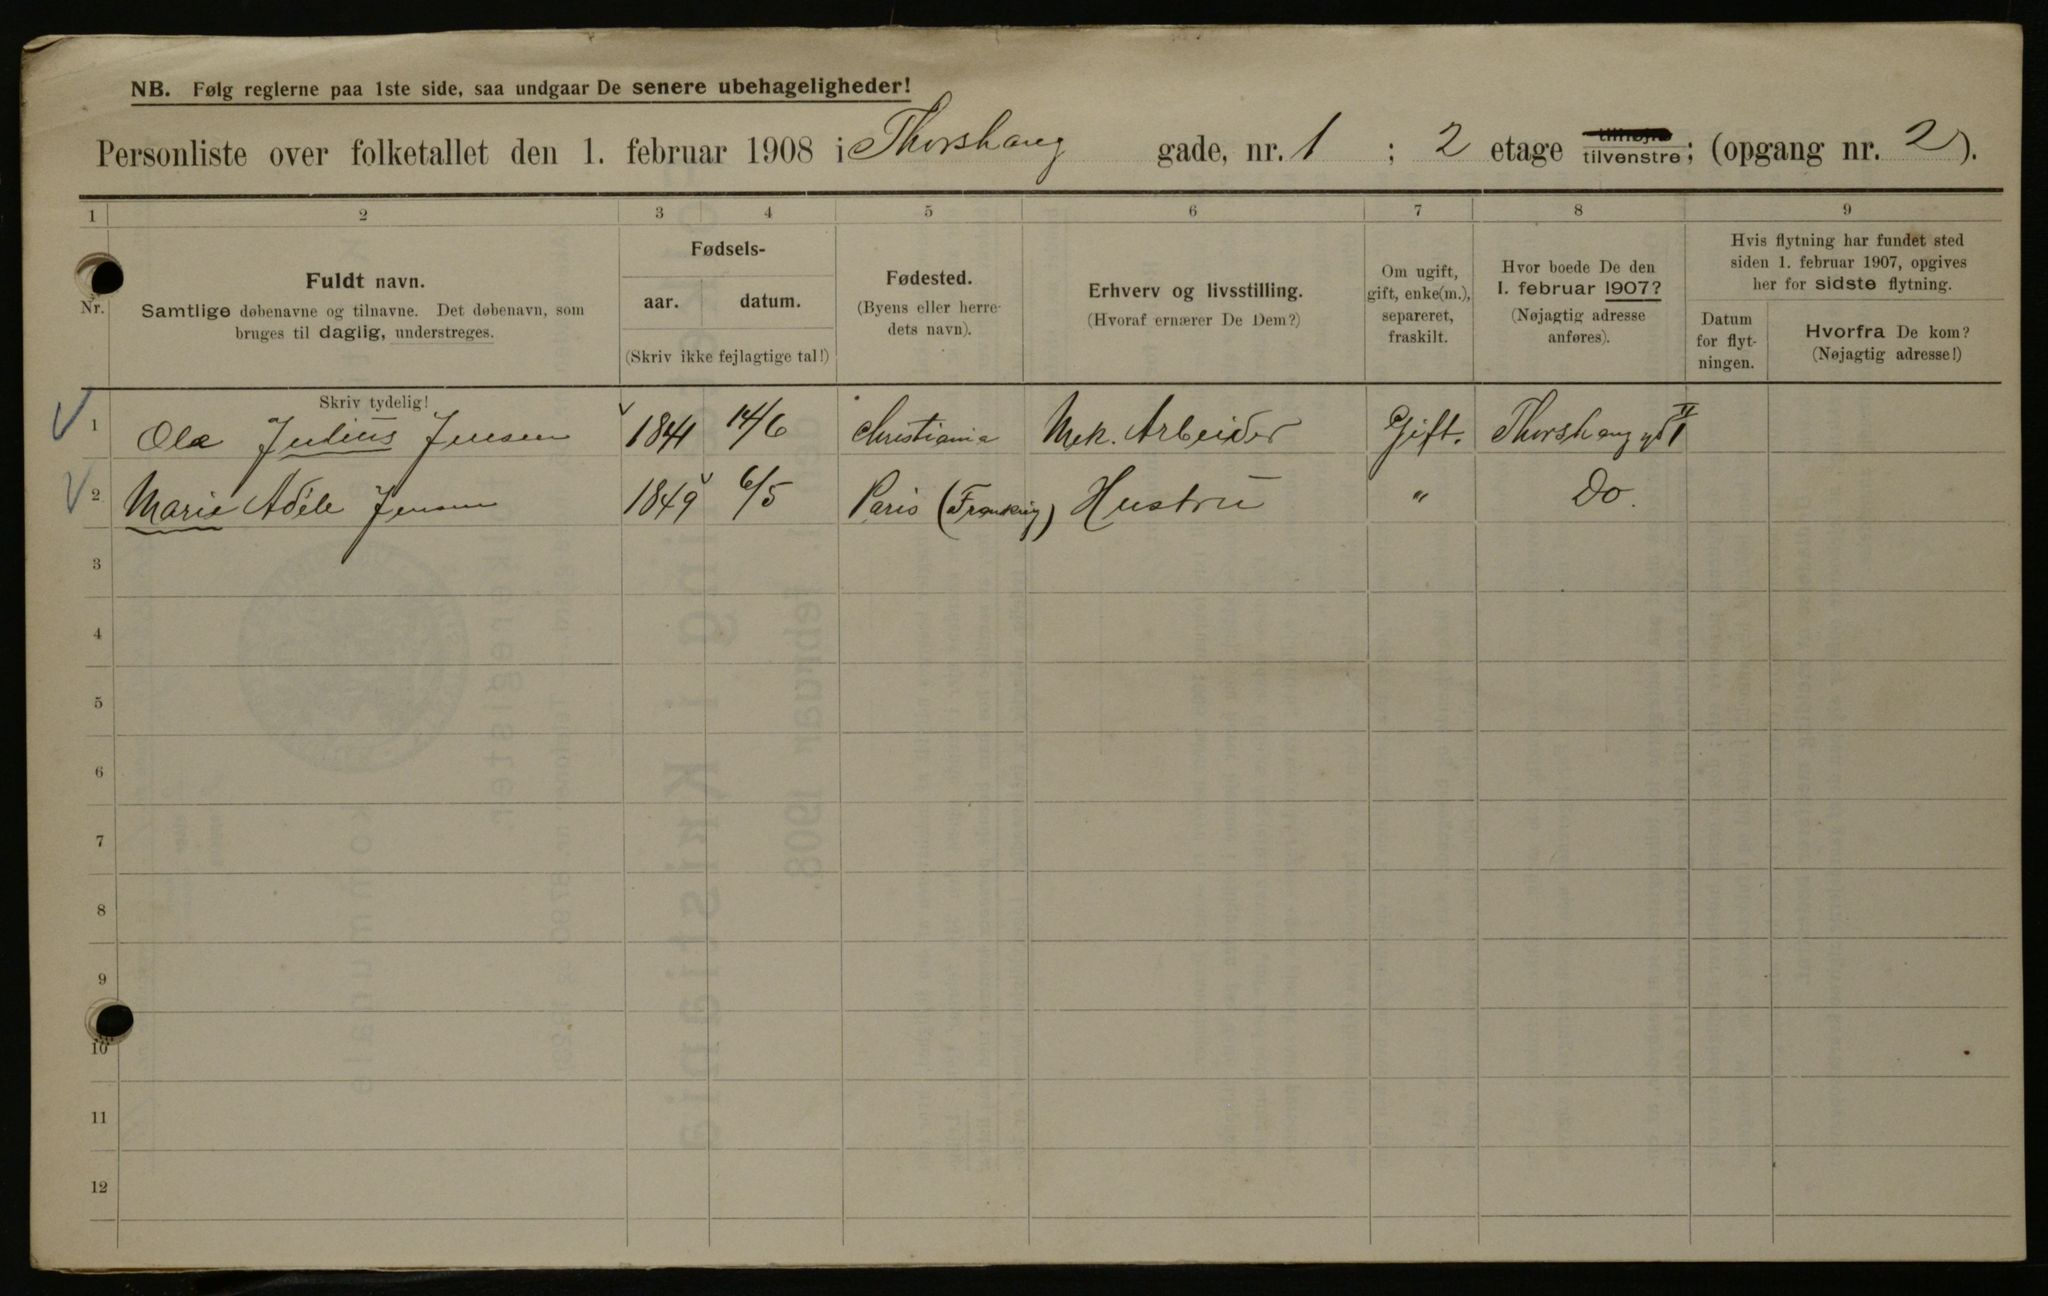 NB. Følg reglerne paa 1ste side, saa undgaar De senere ubehageligheder!
Personliste over folketallet den 1. februar 1908 i Thorshaug gade, nr. 1 ; 2 etage tilhøjre tilvenstre; (opgang nr. 2).
1 2 3 4 5 6 7 8 9
Nr.
Fuldt navn.
Samtlige døbenavne og tilnavne. Det døbenavn, som
bruges til daglig, understreges.
Fødsels-
aar. datum.
(Skriv ikke fejlagtige tal!)
Fødested.
(Byens eller herre-
dets navn).
Erhverv og livsstilling.
(Hvoraf ernærer De Dem?)
Om ugift,
gift, enke(m.),
separeret,
fraskilt.
Hvor boede De den
1. februar 1907?
(Nøjagtig adresse
anføres).
Hvis flytning har fundet sted
siden 1. februar 1907, opgives
her for sidste flytning.
Datum
for flyt-
ningen.
Hvorfra De kom?
(Nøjagtig adresse!)
Skriv tydelig!
1 Ola Julius Jensen 1841 14/6 Christiania Mek. Arbeider Gift. Thorshaug gd 1 II
2 Marie Adéle Jensen 1849 6/5 Paris (Frankrig) Hustru " Do.
3
4
5
6
7
8
9
10
11
12